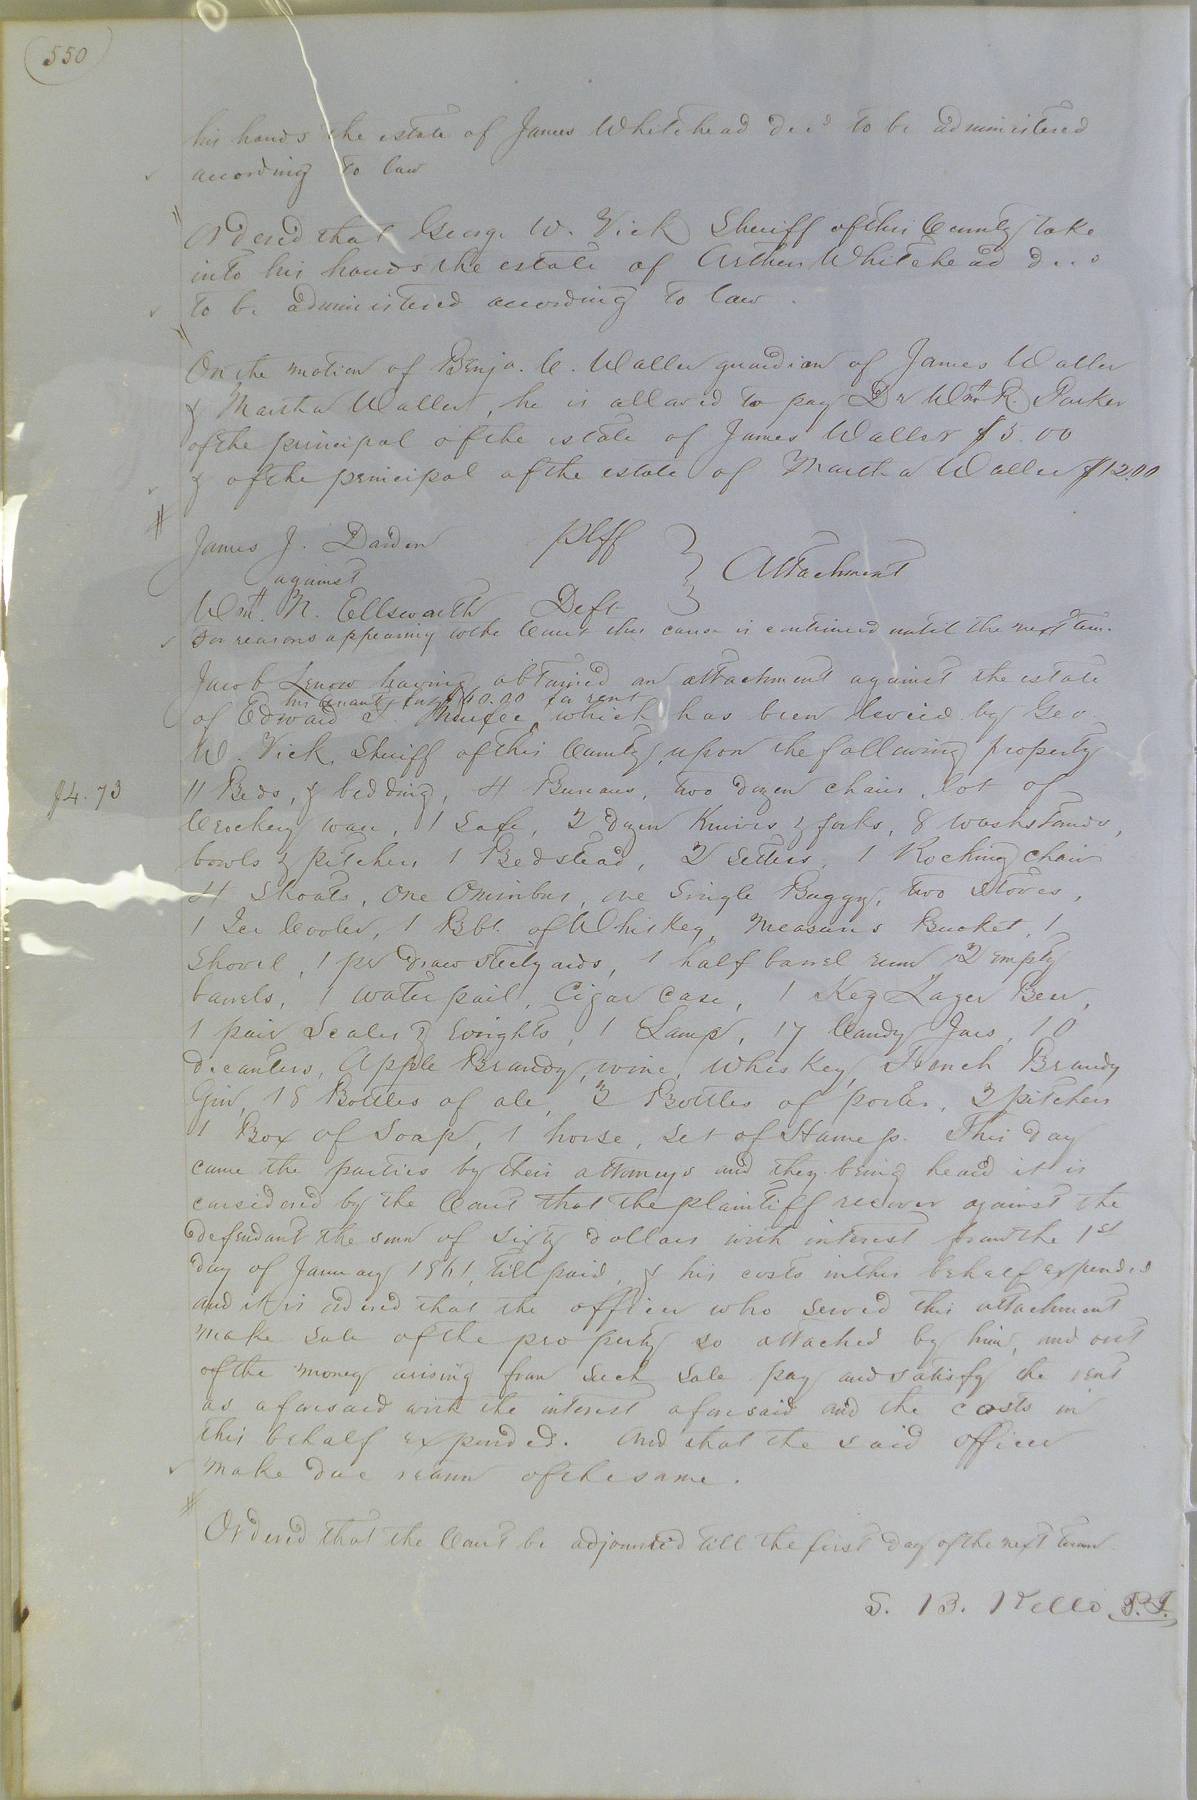 550
his hands the estate of James Whitehead decd to be administered
according to law
Ordered that George W. Vick Sheriff of this County take
into his hands the estate of Arthur Whitehead decd
to be administered according to law.
On the motion of Benja. C. Waller guardian of James Waller
& Martha Waller, he is allowed to pay Dr Wm R. Parker
of the principal of the estate of James Waller $5.00
& of the principal of the estate of Martha Waller $12.00
James J. Darden Plff
against } Attachment
Wm N. Ellsworth Deft
For reasons appearing to the Court this cause is continued until the next term.
Jacob Lenow having obtained an attachment against the estate
his tenant, for $60.00 for rent
of Edward C. which has been levied by Geo.
W. Vick, Sheriff of this County, upon the following property
$4.73
11 Beds, & bedding, 4 Bureaus, two dozen chairs, lot of
Crockery ware, 1 Safe, 2 dozen Knives & forks, 8 washstands,
bowls & pitchers 1 Bedstead, 2 Settees, 1 Rocking chair
4 Shoats, One Omnibus, one Single Buggy, two Stoves,
1 Ice Cooler, 1 Bbl. of Whiskey, Measures Bucket, 1
Shovel, 1 pr draw Steelyards, 1 half barrel rum, 2 empty
barrels, 1 water pail, Cigar case, 1 Keg Lager Beer,
1 pair Scales & weights, 1 Lamp, 17 Candy Jars, 10
decanters, Apple Brandy, wine, Whiskey, French Brandy
Gin, 18 Bottles of ale, 3 Bottles of porter, 3 pitchers
1 Box of Soap, 1 horse, Set of Harness. This day
came the parties by their attorneys and they being heard it is
considered by the Court that the plaintiff recover against the
defendant the sum of Sixty dollars with interest from the 1st
day of January 1861, till paid, & his costs in this behalf expended
and it is ordered that the officer who served this attachment
make sale of the property so attached by him, and out
of the money arising from such sale pay and satisfy the rent
as aforesaid with the interest aforesaid and the costs in
this behalf expended. And that the said officer
make due return of the same.
Ordered that the Court be adjourned till the first day of the next term.
S. B. Kello P.J.